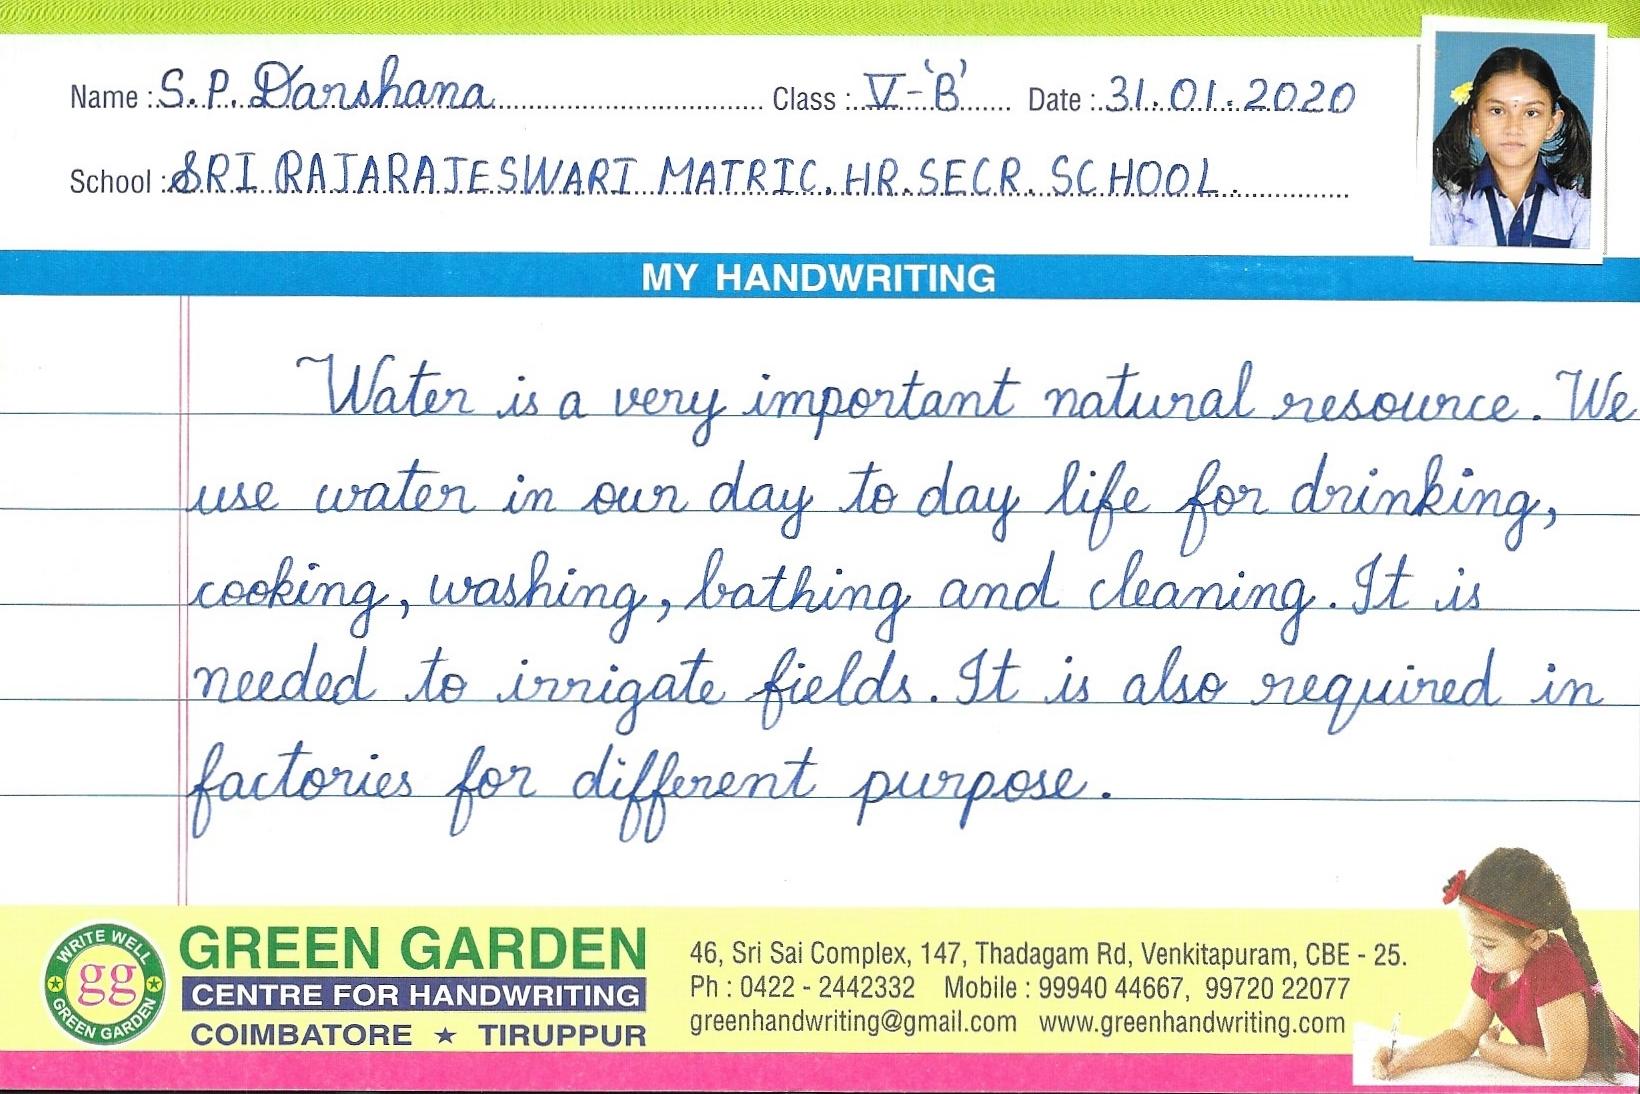 Name : S. P. Darshana Class : V - 'B' Date : 31.01.2020
School : SRI RAJARAJESWARI MATRIC. HR. SECR. SCHOOL.
MY HANDWRITING
Water is a very important natural resource. We
use water in our day to day life for drinking,
cooking, washing, bathing and cleaning. It is
needed to irrigate fields. It is also required in
factories for different purpose.
WRITE WELL
gg
GREEN GARDEN
GREEN GARDEN
CENTRE FOR HANDWRITING
COIMBATORE ★ TIRUPPUR
46, Sri Sai Complex, 147, Thadagam Rd, Venkitapuram, CBE - 25.
Ph : 0422 - 2442332 Mobile : 99940 44667, 99720 22077
greenhandwriting@gmail.com www.greenhandwriting.com